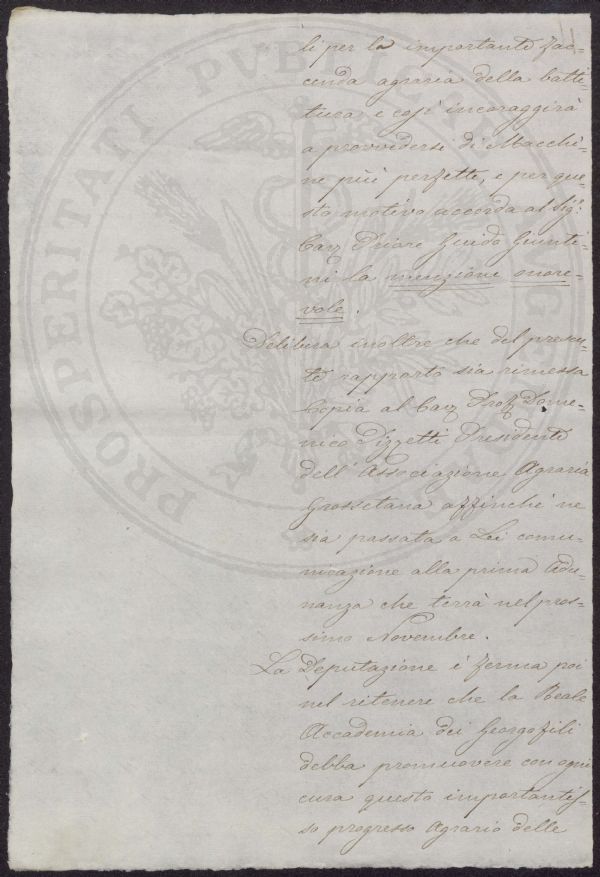 li per la importante fac-
cenda agraria della batti-
tura e così incoraggirà
a provvedersi di Macchi-
ne più perfette, e per que-
sto motivo accorda al Sigr.
Cav Priore Guido Giunti-
ni la menzione onore-
vole.
Delibera inoltre che del presen-
te rapporto sia rimessa
Copia al Cav Prof Dome-
nico Pizzetti Presidente
dell'Associazione Agraria
Grossetana affinchè ne
sia passata a Lei comu-
nicazione alla prima Adu-
nanza che terrà nel pros-
simo Novembre.
La Deputazione è ferma poi
nel ritenere che la Reale
Accademia dei Georgofili
debba promuovere con ogni
cura questo importantis-
so progresso Agrario delle
PROSPERITATI PVBLICAE AVGENDAE